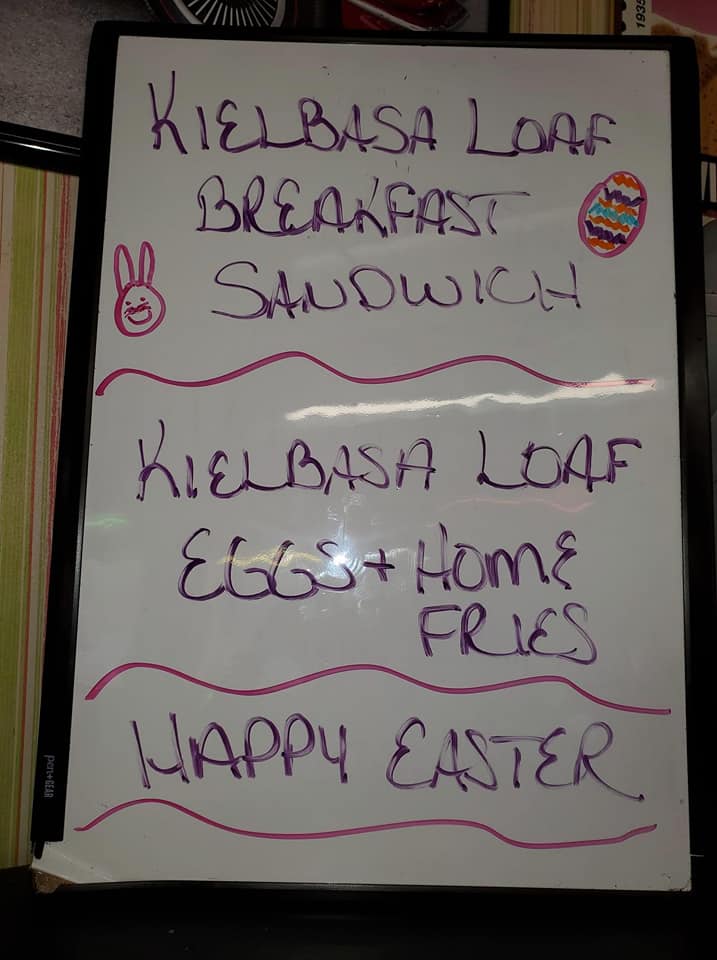 1935
KIELBASA LOAF
BREAKFAST
SANDWICH
KIELBASA LOAF
EGGS + HOME
FRIES
HAPPY EASTER
pen+GEAR